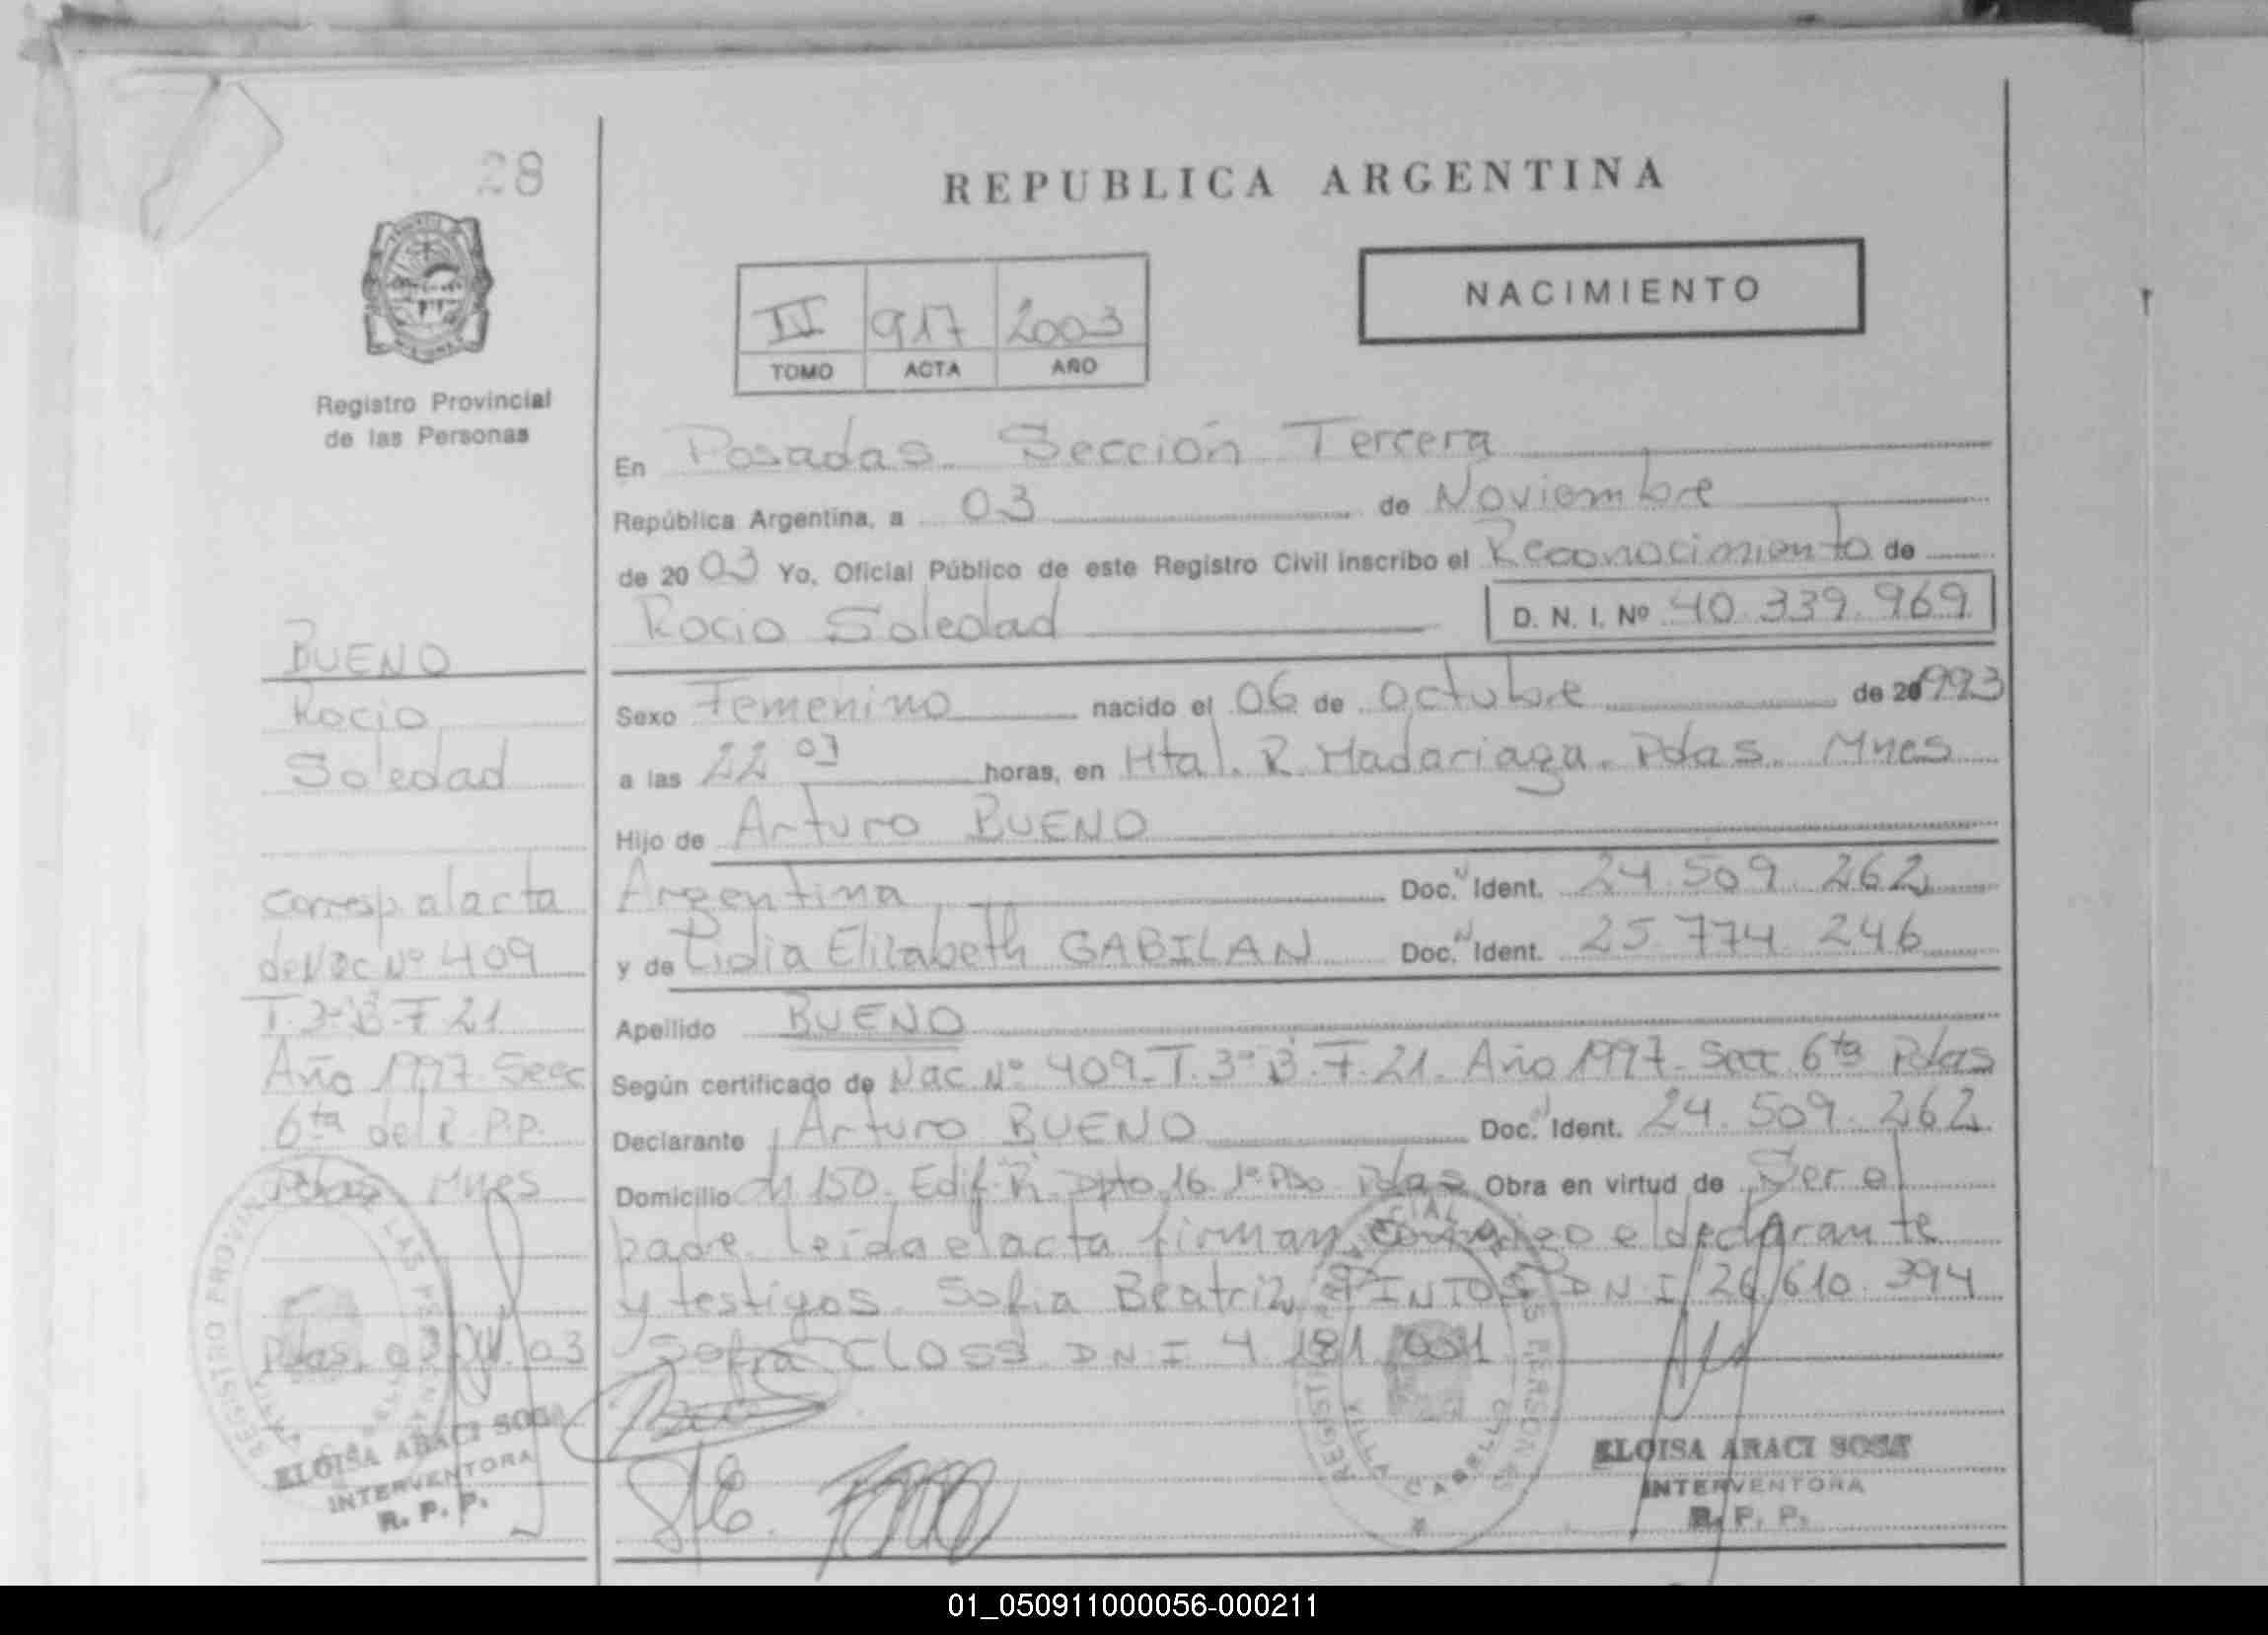 28
REPUBLICA ARGENTINA
NACIMIENTO
II 917 2003
TOMO ACTA AÑO
Registro Provincial
de las Personas
En Posadas. Sección Tercera
República Argentina, a 03 de Noviembre
de 2003 Yo, Oficial Público de este Registro Civil inscribo el Reconocimiento de
Rocio Soledad D. N. I. Nº 40.339.969
BUENO
Rocio
Soledad
Sexo Femenino nacido el 06 de octubre de 1993
a las 22 07 horas, en Htal. R. Madariaga. Pdas. Mnes
Hijo de Arturo BUENO
Argentina Doc. Ident. 24.509.262
y de Lidia Elizabeth GABILAN Doc. Ident. 25.774.246
Apellido BUENO
Según certificado de Nac Nº 409-T.3º B.F.21. Año 1997- Secc 6ta Pdas
Declarante Arturo BUENO Doc. Ident. 24.509.262
Domicilio Ch 150. Edif. Dpto 16 1º Piso Pdas Obra en virtud de Ser el
padre. leida el acta firman conmigo el declarante
y testigos. Sofia Beatriz PINTOS DNI 26.610.394
Sofia CLOSS DNI 4.181.
corresp al acta
de Nac Nº 409
T.3º B-F 21
Año 1997 Secc
6ta del R.P.P.
Pdas Mnes
Pdas, 03 03
REGISTRO PROVINCIAL DE LAS PERSONAS
VILLA CABELLO
ELOISA ARACI SOSA
INTERVENTORA
R. P. P.
REGISTRO PROVINCIAL DE LAS PERSONAS
VILLA CABELLO
ELOISA ARACI SOSA
INTERVENTORA
R. P. P.
01_050911000056-000211